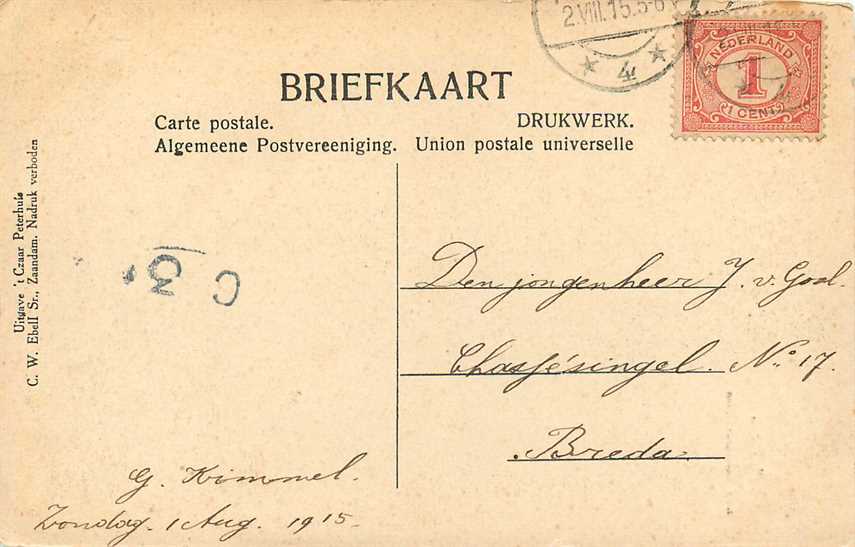 2.VIII.15.5-6
4
NEDERLAND
1
1 CENT
BRIEFKAART
Carte postale. DRUKWERK.
Algemeene Postvereeniging. Union postale universelle
Uitgave 't Czaar Peterhuis
C. W. Ebell Sr., Zaandam. Nadruk verboden
C 3
Den jongenheer J. v. Gool.
Chasséesingel. No. 17.
Breda.
G. Kimmel.
Zondag. 1 Aug. 1915.